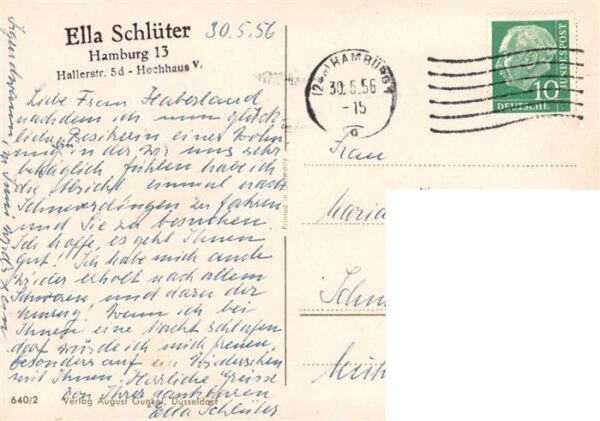 Ella Schlüter
Hamburg 13
Hallerstr. 5d - Hochhaus V.
30.5.56
Liebe Frau Haberland
nachdem ich nun glück-
liche Besitzerin einer Wohn
ung in der wir uns sehr
behaglich fühlen habe ich
die Absicht einmal nach
Schneverdingen zu fahren
und Sie zu besuchen.
Ich hoffe, es geht Ihnen
gut! Ich habe mich auch
wieder erholt nach allem
Schweren und dazu der
Umzug! Wenn ich bei
Ihnen eine Nacht schlafen
darf würde ich mich freuen,
besonders auf ein Wiedersehen
mit Ihnen. Herzliche Grüsse
von Ihrer dankbaren
Ella Schlüter
640/2 Verlag August Gunkel, Düsseldorf
Printed in Germany
(24a) HAMBURG 1
30.5.56
-15
a
DEUTSCHE BUNDESPOST
10
Frau